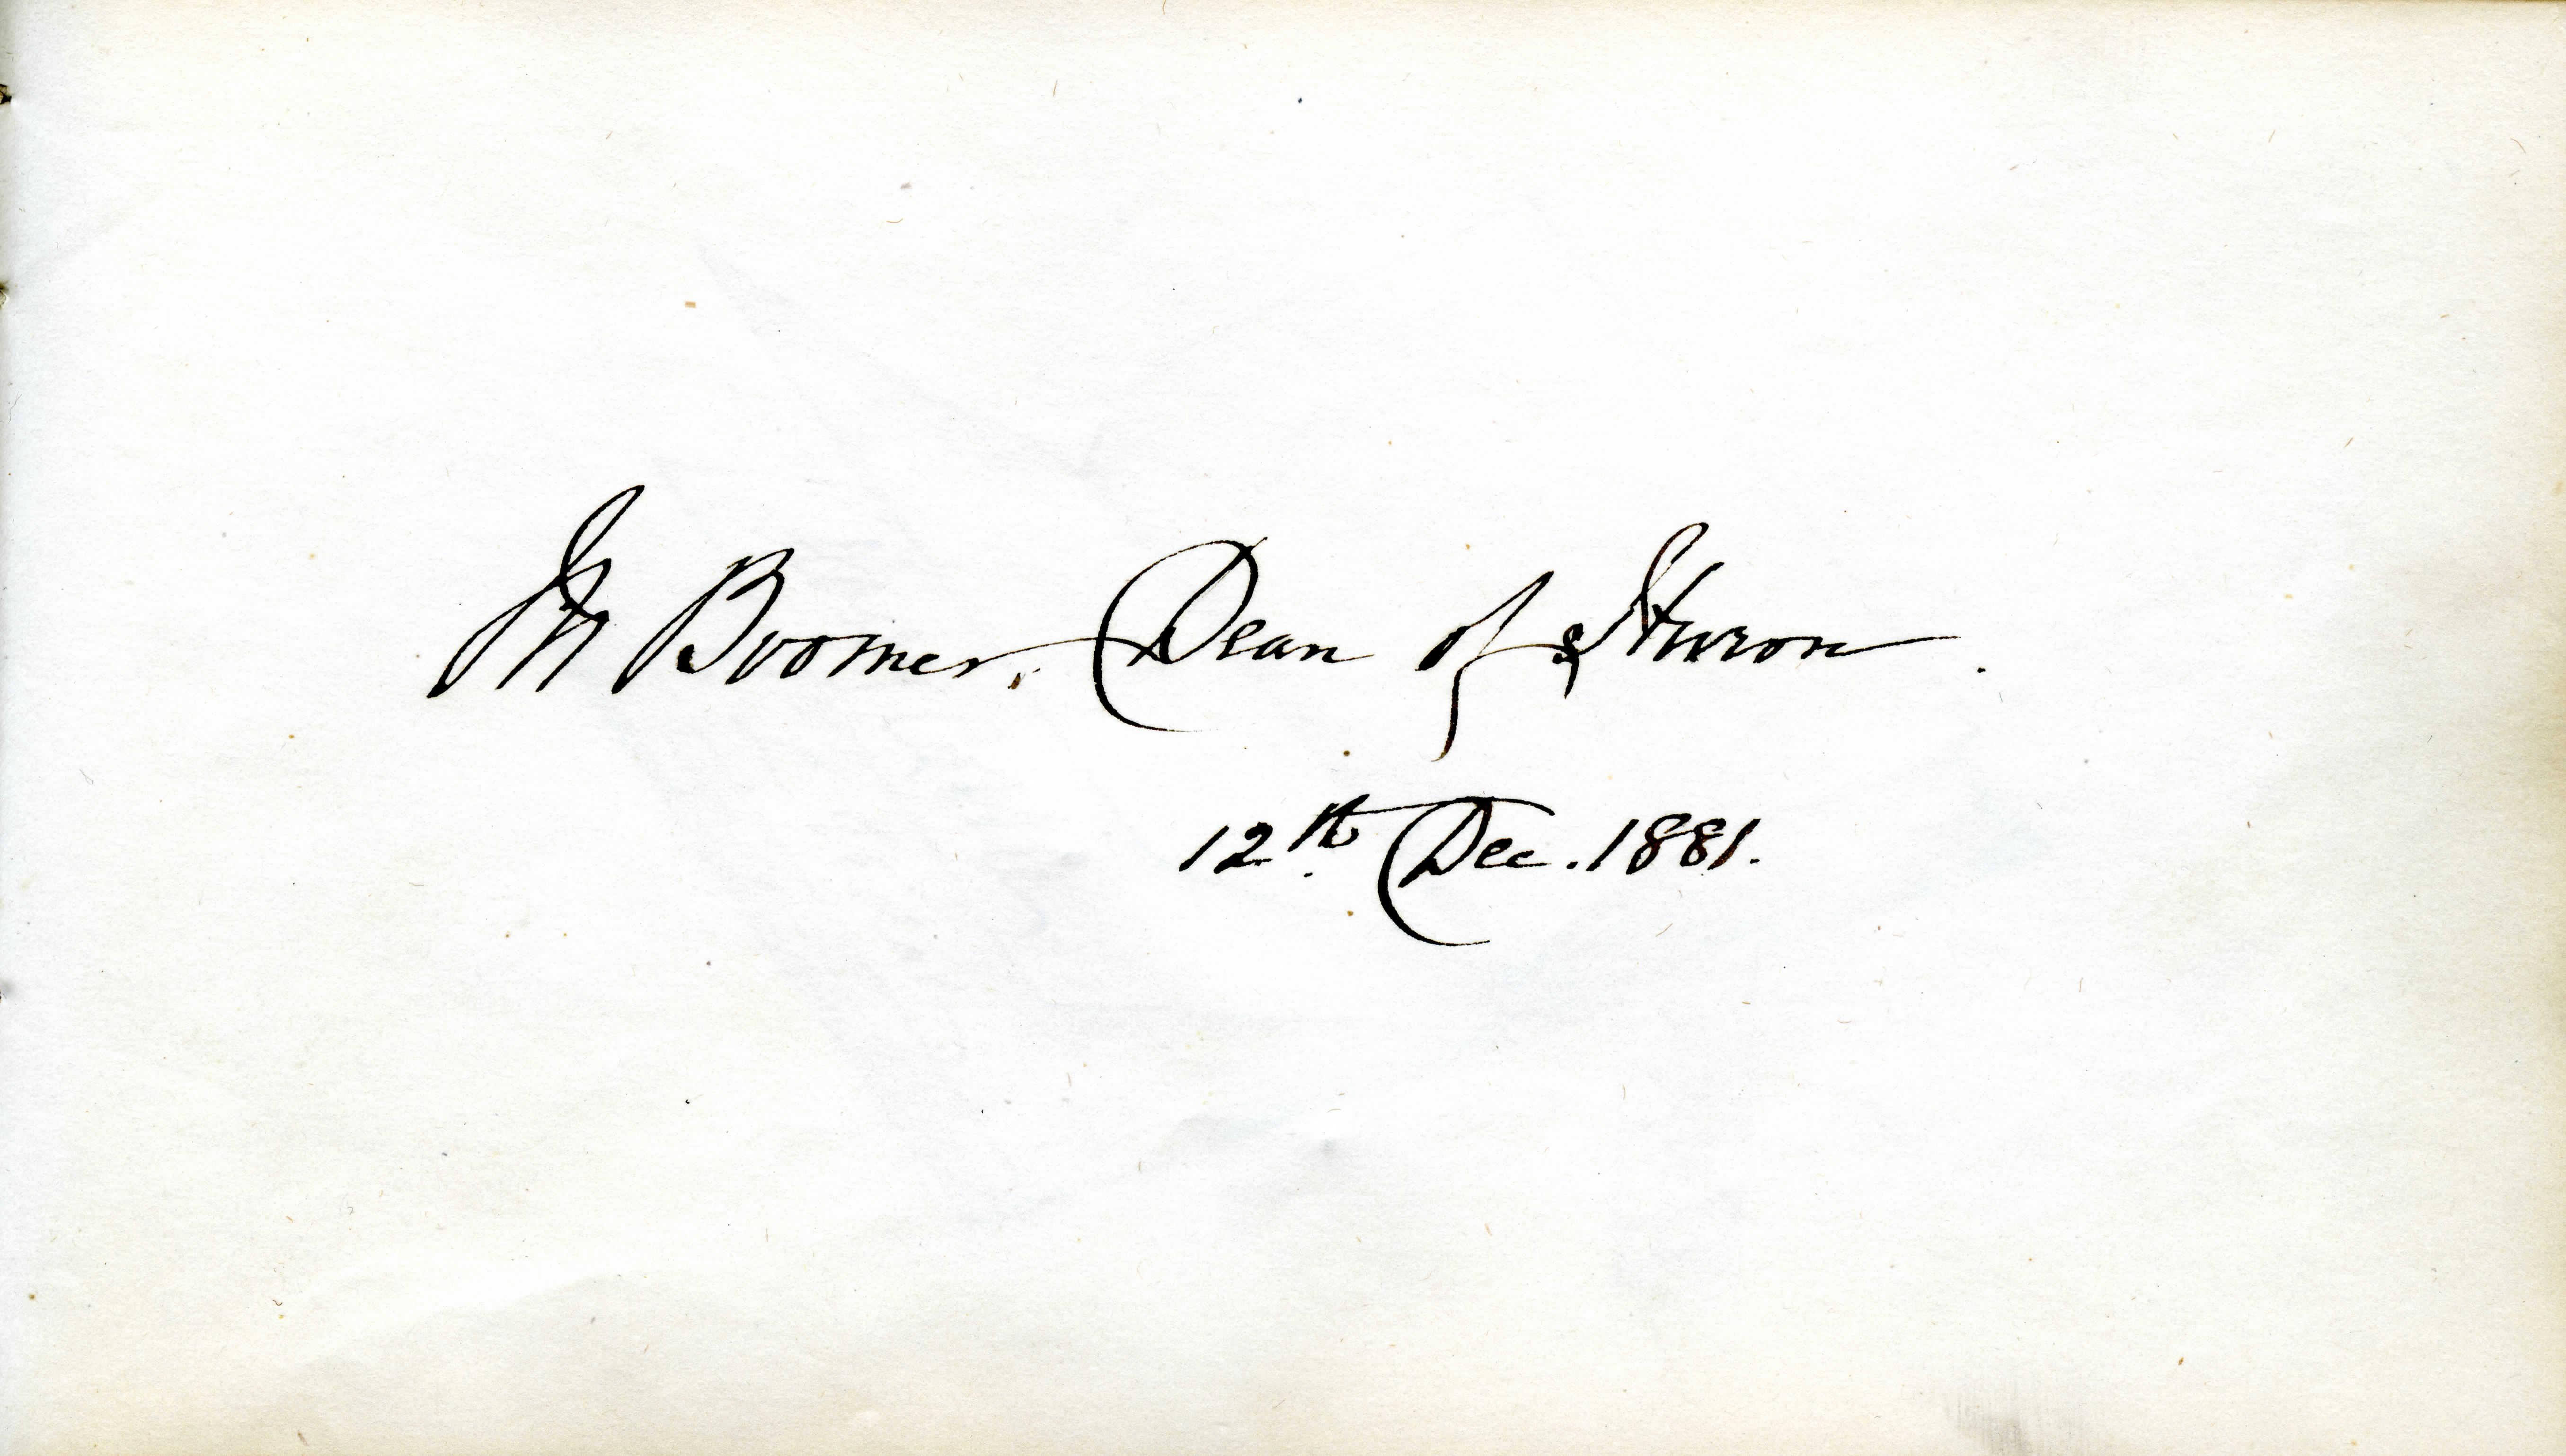 M Boomer. Dean of Huron.
12th Dec. 1881.